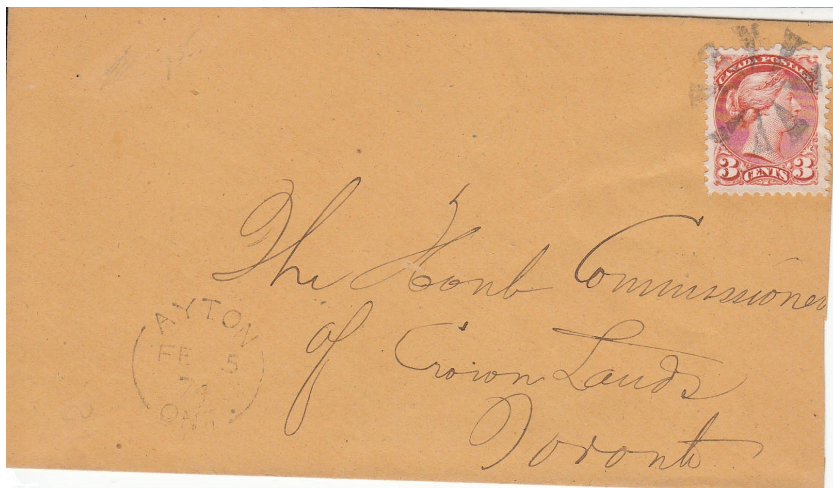 CANADA POSTAGE
3 CENTS 3
The Honb Commissioner
of Crown Lands
Toronto
AYTON
FE 5
74
ONT